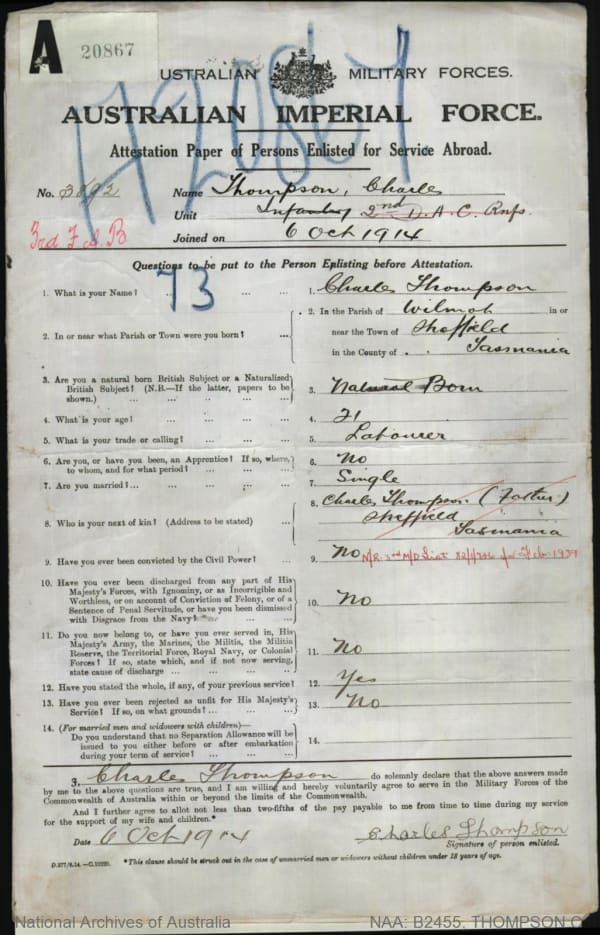 A 20867
AUSTRALIAN MILITARY FORCES.
AUSTRALIAN IMPERIAL FORCE.
Attestation Paper of Persons Enlisted for Service Abroad.
No. 3892 Name Thompson, Charles
Unit Infantry 2nd D.A.C. Rnfs.
3rd F.A.B
Joined on 6 Oct 1914
Questions to be put to the Person Enlisting before Attestation.
73
1. What is your Name? ... ... ... 1. Charles Thompson
2. In or near what Parish or Town were you born? ... 2. In the Parish of Wilmot in or
near the Town of Sheffield
in the County of Tasmania
3. Are you a natural born British Subject or a Naturalized
British Subject? (N.B.—If the latter, papers to be
shown.) ... ... ... ... ... 3. Natural Born
4. What is your age? ... ... ... ... 4. 21
5. What is your trade or calling? ... ... ... 5. Labourer
6. Are you, or have you been, an Apprentice? If so, where,
to whom, and for what period? ... ... ... 6. No
7. Are you married? ... ... ... ... 7. Single
8. Who is your next of kin? (Address to be stated) ... 8. Charles Thompson. (Father)
Sheffield
Tasmania
9. Have you ever been convicted by the Civil Power? ... 9. No
10. Have you ever been discharged from any part of His
Majesty's Forces, with Ignominy, or as Incorrigible and
Worthless, or on account of Conviction of Felony, or of a
Sentence of Penal Servitude, or have you been dismissed
with Disgrace from the Navy? ... ... ... 10. No
11. Do you now belong to, or have you ever served in, His
Majesty's Army, the Marines, the Militia, the Militia
Reserve, the Territorial Force, Royal Navy, or Colonial
Forces? If so, state which, and if not now serving,
state cause of discharge ... ... ... ... 11. No
12. Have you stated the whole, if any, of your previous service? 12. Yes
13. Have you ever been rejected as unfit for His Majesty's
Service? If so, on what grounds? ... ... ... 13. No
14. (For married men and widowers with children)—
Do you understand that no Separation Allowance will be
issued to you either before or after embarkation
during your term of service? ... ... ... 14.
I, Charles Thompson do solemnly declare that the above answers made
by me to the above questions are true, and I am willing and hereby voluntarily agree to serve in the Military Forces of the
Commonwealth of Australia within or beyond the limits of the Commonwealth.
And I further agree to allot not less than two-fifths of the pay payable to me from time to time during my service
for the support of my wife and children.*
Date 6 Oct 1914 Charles Thompson
Signature of person enlisted.
*This clause should be struck out in the case of unmarried men or widowers without children under 18 years of age.
National Archives of Australia NAA: B2455, THOMPSON C